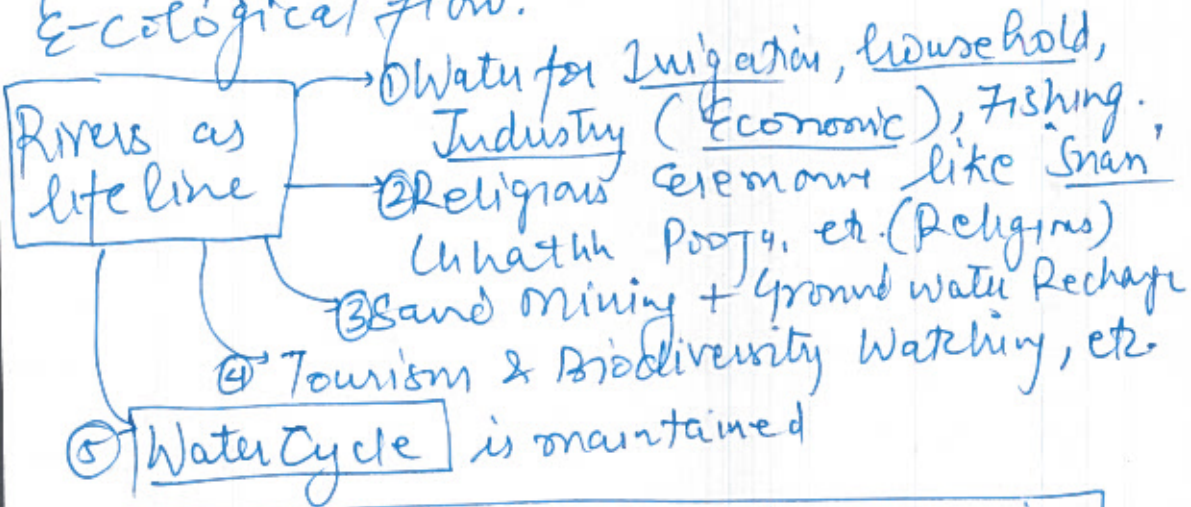 E-cological flow.
Rivers as
life line
① Water for Irrigation, household,
Industry (Economic), Fishing.
② Religious ceremonies like 'Snan'
Chhathh Pooja, etc. (Religious)
③ Sand mining + Ground water Recharge
④ Tourism & Biodiversity Watching, etc.
⑤ Water Cycle is maintained